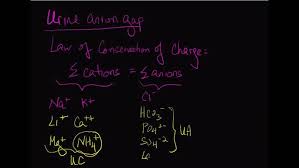 Urine anion gap
Law of Conservation of Charge:
Σ cations = Σ anions
Na⁺ K⁺ Cl⁻
Li⁺ Ca⁺⁺ HCO₃⁻
Mg⁺ NH₄⁺ PO₄³⁻
SO₄⁻²
UC UA